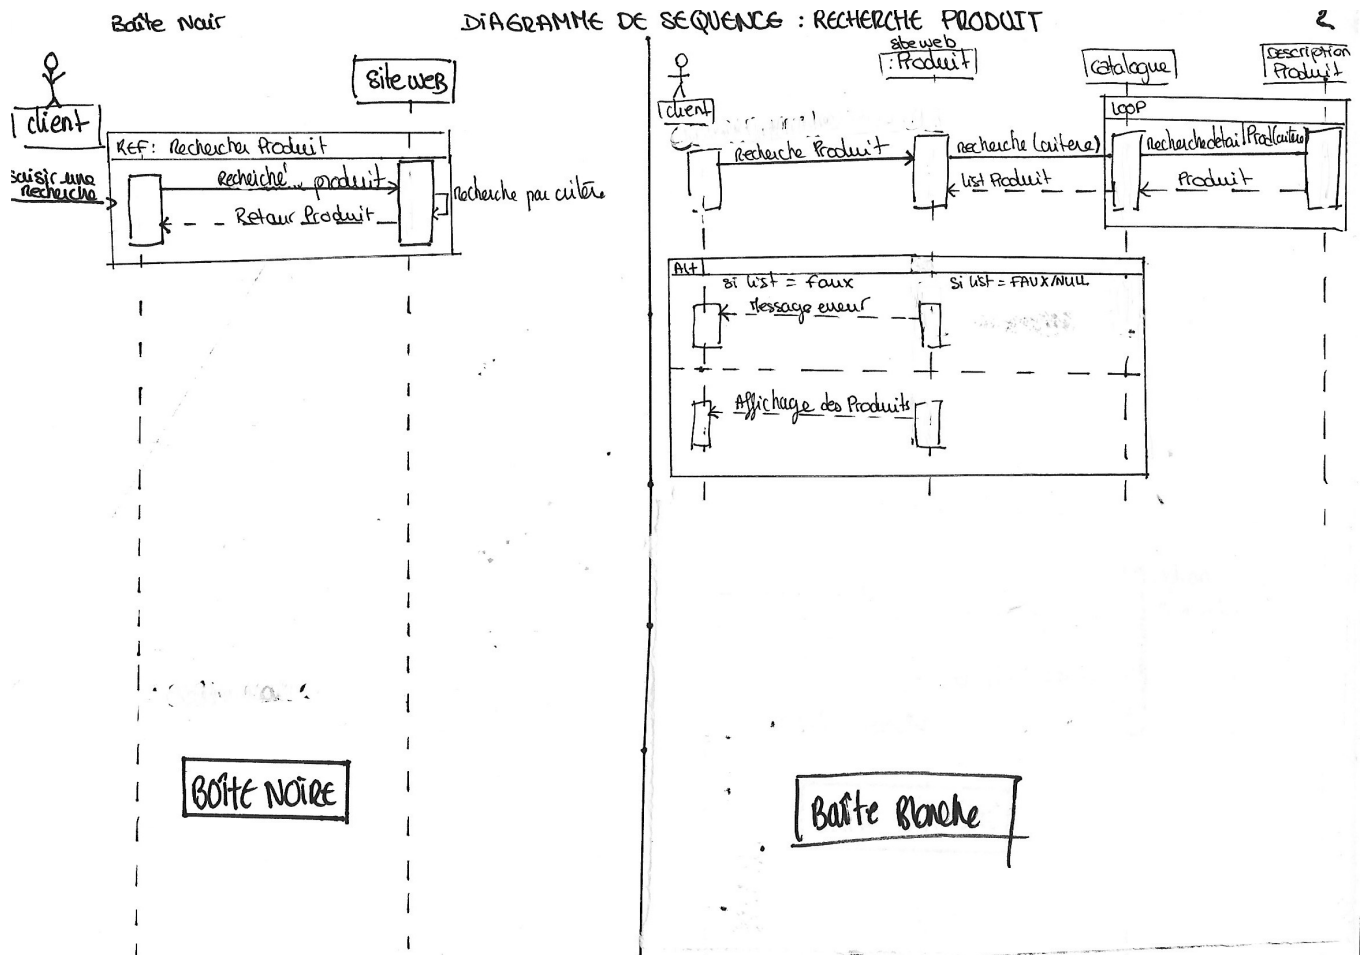 Boîte Noir
DIAGRAMME DE SEQUENCE : RECHERCHE PRODUIT
2
client
siteweb
REF: Rechercher Produit
saisir une
recherche
Recherche produit
Retour Produit
recherche par critère
BOÎTE NOIRE
siteweb
: Produit
client
catalogue
Description
Produit
LOOP
Recherche Produit
recherche (critere)
recherchedetailProd(critere)
list Produit
Produit
Alt
si list = faux
si list = FAUX/NULL
Message erreur
Affichage des Produits
Boîte Blanche